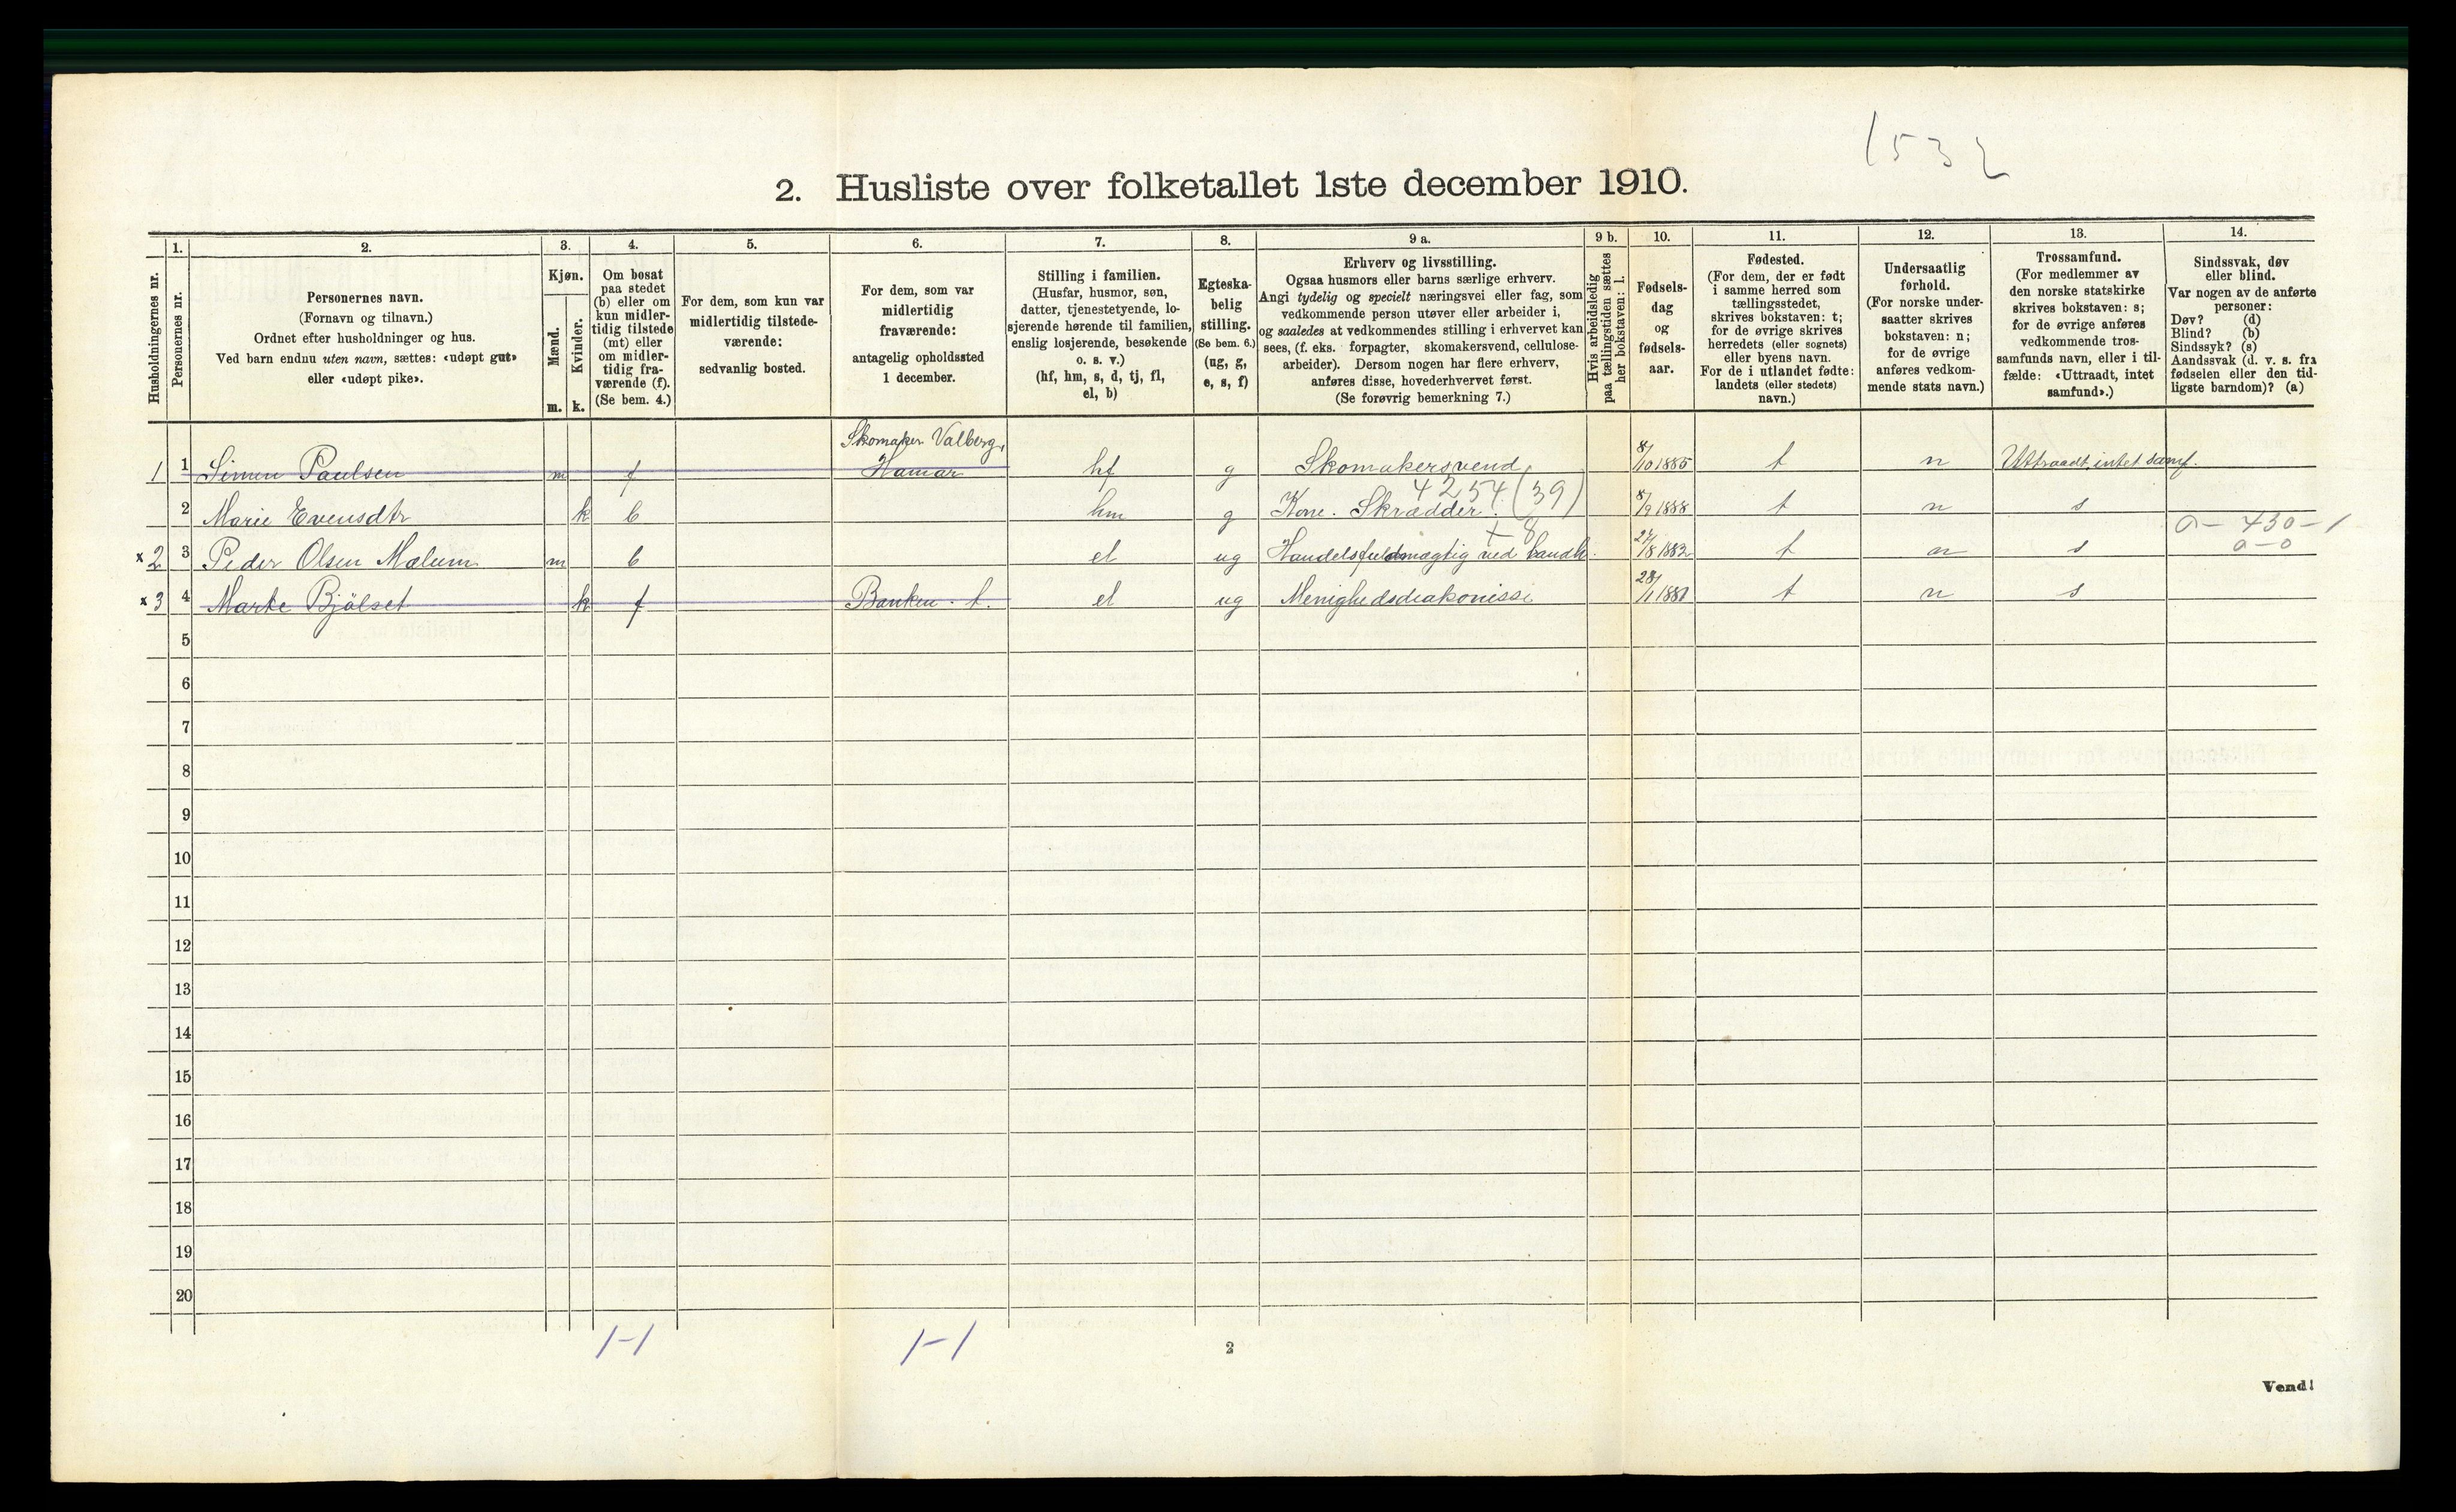 1532
2. Husliste over folketallet 1ste december 1910.
Husholdningernes nr.
1.
Personernes nr.
2.
Personernes navn.
(Fornavn og tilnavn.)
Ordnet efter husholdninger og hus.
Ved barn endnu uten navn, sættes: «udøpt gut»
eller «udøpt pike».
3.
Kjøn.
Mænd.
Kvinder.
m. k.
4.
Om bosat
paa stedet
(b) eller om
kun midler-
tidig tilstede
(mt) eller
om midler-
tidig fra-
værende (f).
(Se bem. 4.)
5.
For dem, som kun var
midlertidig tilstede-
værende:
sedvanlig bosted.
6.
For dem, som var
midlertidig
fraværende:
antagelig opholdssted
1 december.
7.
Stilling i familien.
(Husfar, husmor, søn,
datter, tjenestetyende, lo-
sjerende hørende til familien,
enslig losjerende, besøkende
o. s. v.)
(hf, hm, s, d, tj, fl,
el, b)
8.
Egteska-
belig
stilling.
(Se bem. 6.)
(ug, g,
e, s, f)
9 a.
Erhverv og livsstilling.
Ogsaa husmors eller barns særlige erhverv.
Angi tydelig og specielt næringsvei eller fag, som
vedkommende person utøver eller arbeider i,
og saaledes at vedkommendes stilling i erhvervet kan
sees, (f. eks. forpagter, skomakersvend, cellulose-
arbeider). Dersom nogen har flere erhverv,
anføres disse, hovederhvervet først.
(Se forøvrig bemerkning 7.)
9 b.
Hvis arbeidsledig
paa tællingstiden sættes
her bokstaven: l.
10.
Fødsels-
dag
og
fødsels-
aar.
11.
Fødested.
(For dem, der er født
i samme herred som
tællingsstedet,
skrives bokstaven: t;
for de øvrige skrives
herredets (eller sognets)
eller byens navn.
For de i utlandet fødte:
landets (eller stedets)
navn.)
12.
Undersaatlig
forhold.
(For norske under-
saatter skrives
bokstaven: n;
for de øvrige
anføres vedkom-
mende stats navn.)
13.
Trossamfund.
(For medlemmer av
den norske statskirke
skrives bokstaven: s;
for de øvrige anføres
vedkommende tros-
samfunds navn, eller i til-
fælde: «Uttraadt, intet
samfund».)
14.
Sindssvak, døv
eller blind.
Var nogen av de anførte
personer:
Døv? (d)
Blind? (b)
Sindssyk? (s)
Aandssvak (d. v. s. fra
fødselen eller den tid-
ligste barndom)? (a)
Skomaker Valberg,
1 1 Simen Paulsen m f Hamar hf g Skomakersvend, 8/10 1885 t n Uttraadt, intet samf.
4254 (39)
2 Marie Evensdtr k b hm g Kone. Skrædder. 8/9 1888 t n s
+ 8 0 - 430 - 1
x 2 3 Peder Olsen Mælum m b el ug Handelsfuldmægtig ved landh. 1882 t n s 0 - 0
x 3 4 Marte Bjølset k f Banken. t. el ug Menighedsdiakonisse 28/1 1881 t n s
5
6
7
8
9
10
11
12
13
14
15
16
17
18
19
20
1-1 1-1
2
Vend!